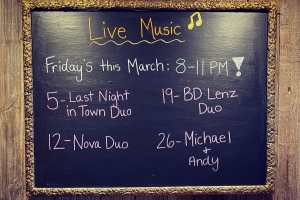 Live Music
Friday's this March: 8-11 PM!
5- Last Night
in Town Duo
19- BD Lenz
Duo
12- Nova Duo
26- Michael
+
Andy